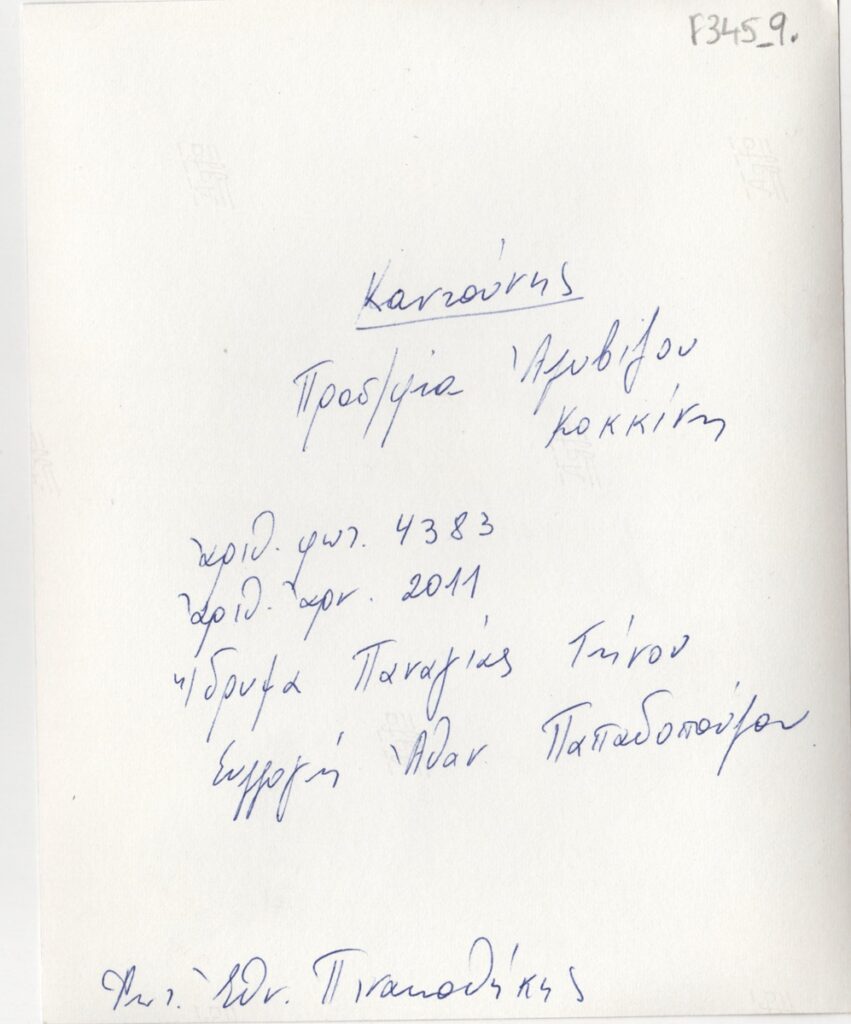 F345_9.
Καντούνης
Προσ/φία Ἀλοβίζου
Κοκκίνη
ἀριθ. φωτ. 4383
ἀριθ. ἀρν. 2011
Ἵδρυμα Παναγίας Τήνου
Συλλογή Ἀθαν. Παπαδοπούλου
Φωτ. Ἐθν. Πινακοθήκης